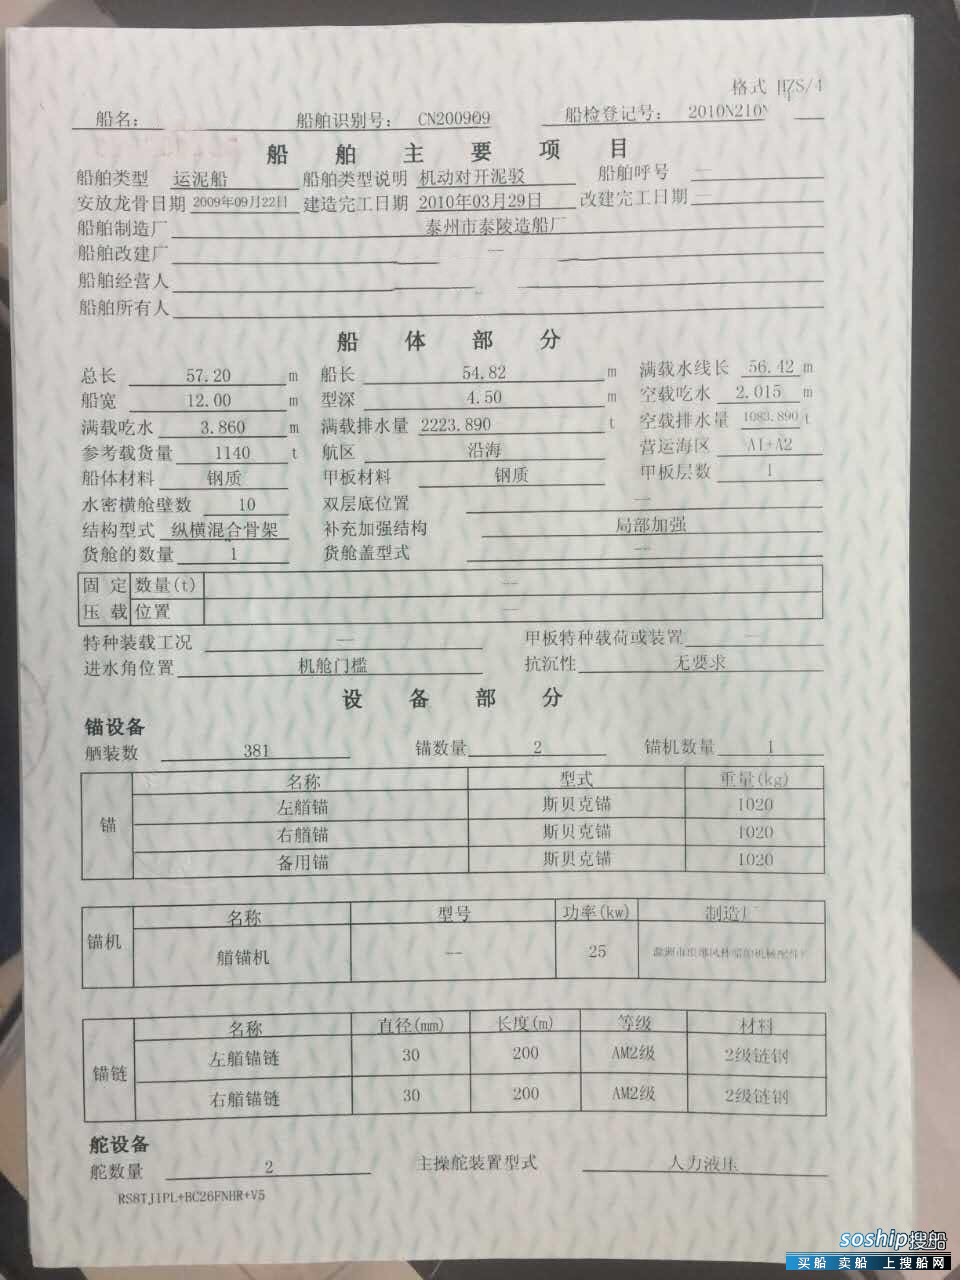 格式 HZS/4
船名： 船舶识别号： CN200909 船检登记号： 2010N210
船舶主要项目
船舶类型 运泥船 船舶类型说明 机动对开泥驳 船舶呼号 —
安放龙骨日期 2009年09月22日 建造完工日期 2010年03月29日 改建完工日期 —
船舶制造厂 泰州市泰陵造船厂
船舶改建厂 —
船舶经营人
船舶所有人
船体部分
总长 57.20 m 船长 54.82 m 满载水线长 56.42 m
船宽 12.00 m 型深 4.50 m 空载吃水 2.015 m
满载吃水 3.860 m 满载排水量 2223.890 t 空载排水量 1083.890 t
参考载货量 1140 t 航区 沿海 营运海区 A1+A2
船体材料 钢质 甲板材料 钢质 甲板层数 1
水密横舱壁数 10 双层底位置 —
结构型式 纵横混合骨架 补充加强结构 局部加强
货舱的数量 1 货舱盖型式 —
固定 数量(t) —
压载 位置 —
特种装载工况 — 甲板特种载荷或装置 —
进水角位置 机舱门槛 抗沉性 无要求
设备部分
锚设备
舾装数 381 锚数量 2 锚机数量 1
名称 型式 重量(kg)
锚 左艏锚 斯贝克锚 1020
右艏锚 斯贝克锚 1020
备用锚 斯贝克锚 1020
名称 型号 功率(kw) 制造厂
锚机 艏锚机 — 25
名称 直径(mm) 长度(m) 等级 材料
锚链 左艏锚链 30 200 AM2级 2级链钢
右艏锚链 30 200 AM2级 2级链钢
舵设备
舵数量 2 主操舵装置型式 人力液压
RS8TJ1PL+BC26FNHR+V5
soship搜船
买船 卖船 上搜船网